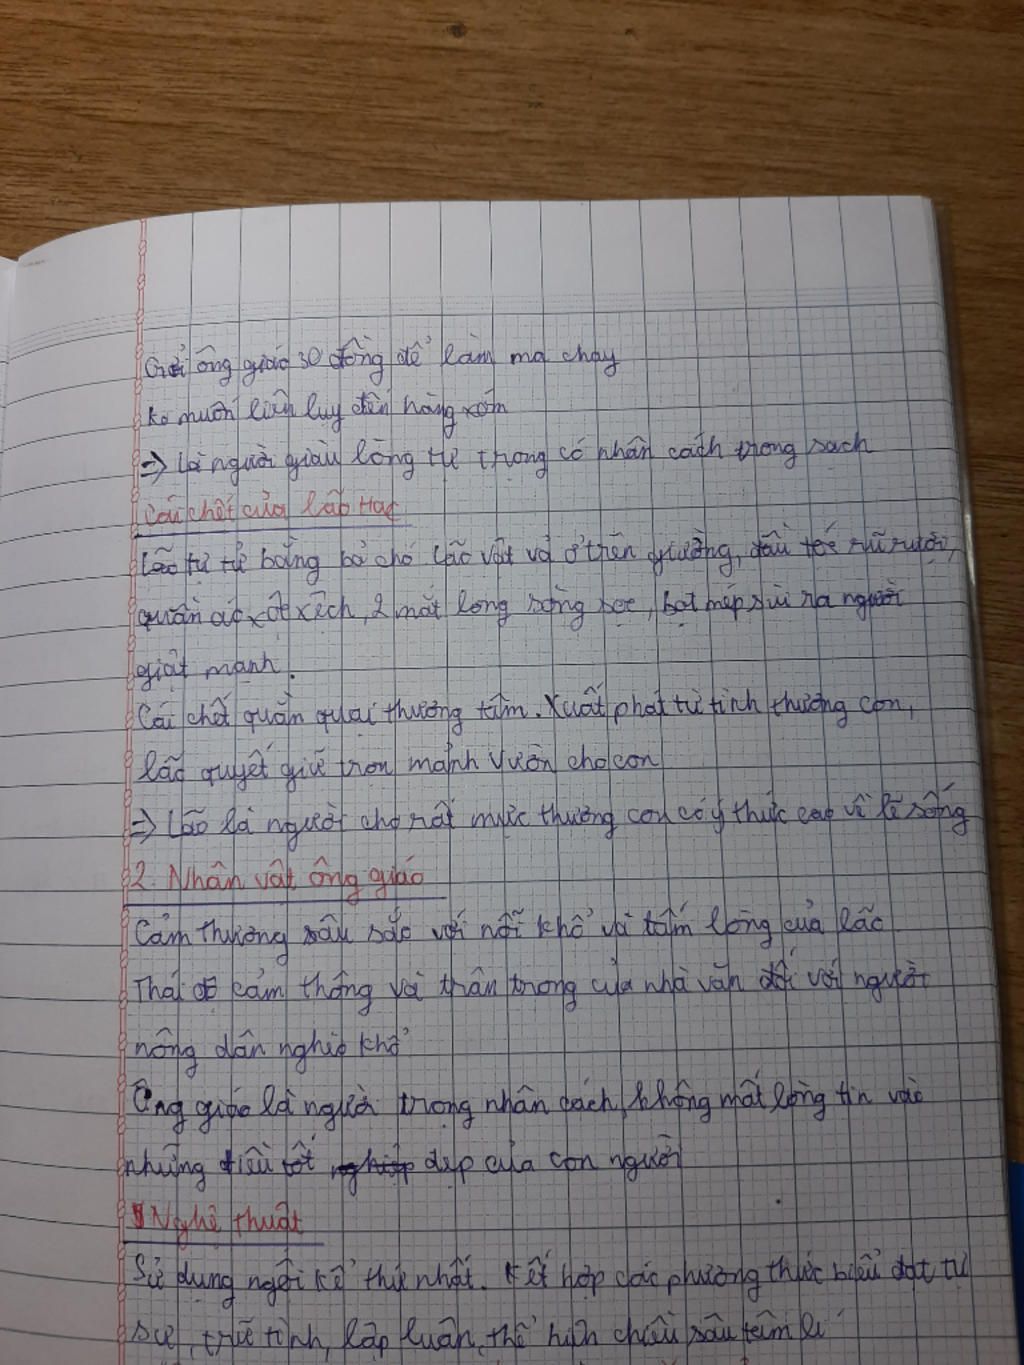 Gửi ông giáo 30 đồng để làm ma chay
ko muốn liên luỵ đến hàng xóm
=> Là người giàu lòng tự trọng có nhân cách trong sạch
Cái chết của lão Hạc
Lão tự tử bằng bả chó lão vật vã ở trên giường, đầu tóc rũ rượi,
quần áo xộc xệch, 2 mắt long sòng sọc, bọt mép sùi ra người
giật mạnh.
Cái chết quằn quại thương tâm. Xuất phát từ tình thương con,
lão quyết giữ trọn mảnh vườn cho con
=> Lão là người cha rất mực thương con có ý thức cao về lẽ sống
2. Nhân vật ông giáo
Cảm thương sâu sắc với nỗi khổ và tấm lòng của lão
Thái độ cảm thông và trân trọng của nhà văn đối với người
nông dân nghèo khổ
Ông giáo là người trọng nhân cách, không mất lòng tin vào
những điều tốt đẹp của con người
Nghệ thuật
Sử dụng ngôi kể thứ nhất. Kết hợp các phương thức biểu đạt tự
sự, trữ tình, lập luận, thể hiện chiều sâu tâm lí